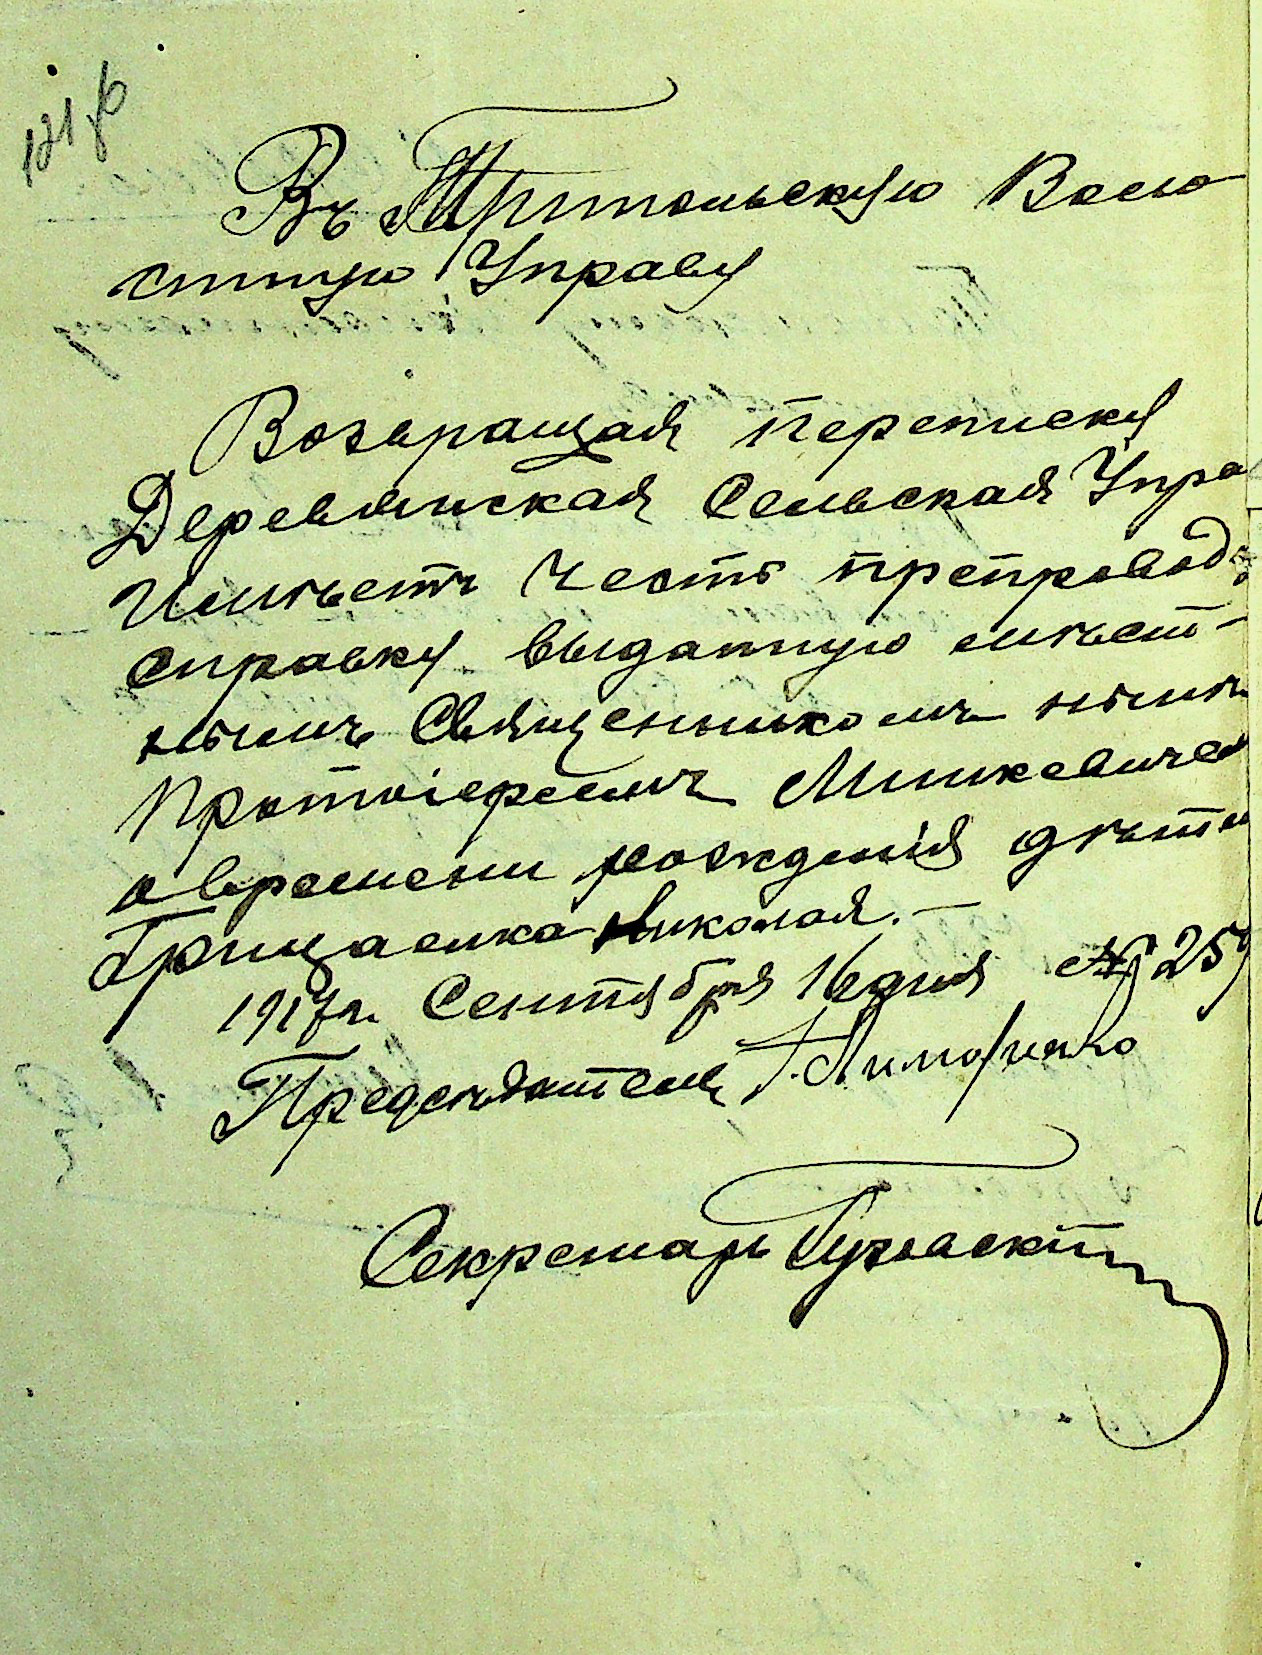 Въ Трипольскую Воло
стную Управу
Возвращая переписку
Деревянская Сельская Упра
Имѣетъ честь препровод
справку выданную мѣст-
нымъ Священникомъ нынѣ
Протоіереемъ Минкевичем
о времени рожденія дѣтей
Грищенка Николая.—
1917 г. Сентября 16 дня № 259
Председатель
Секретарь